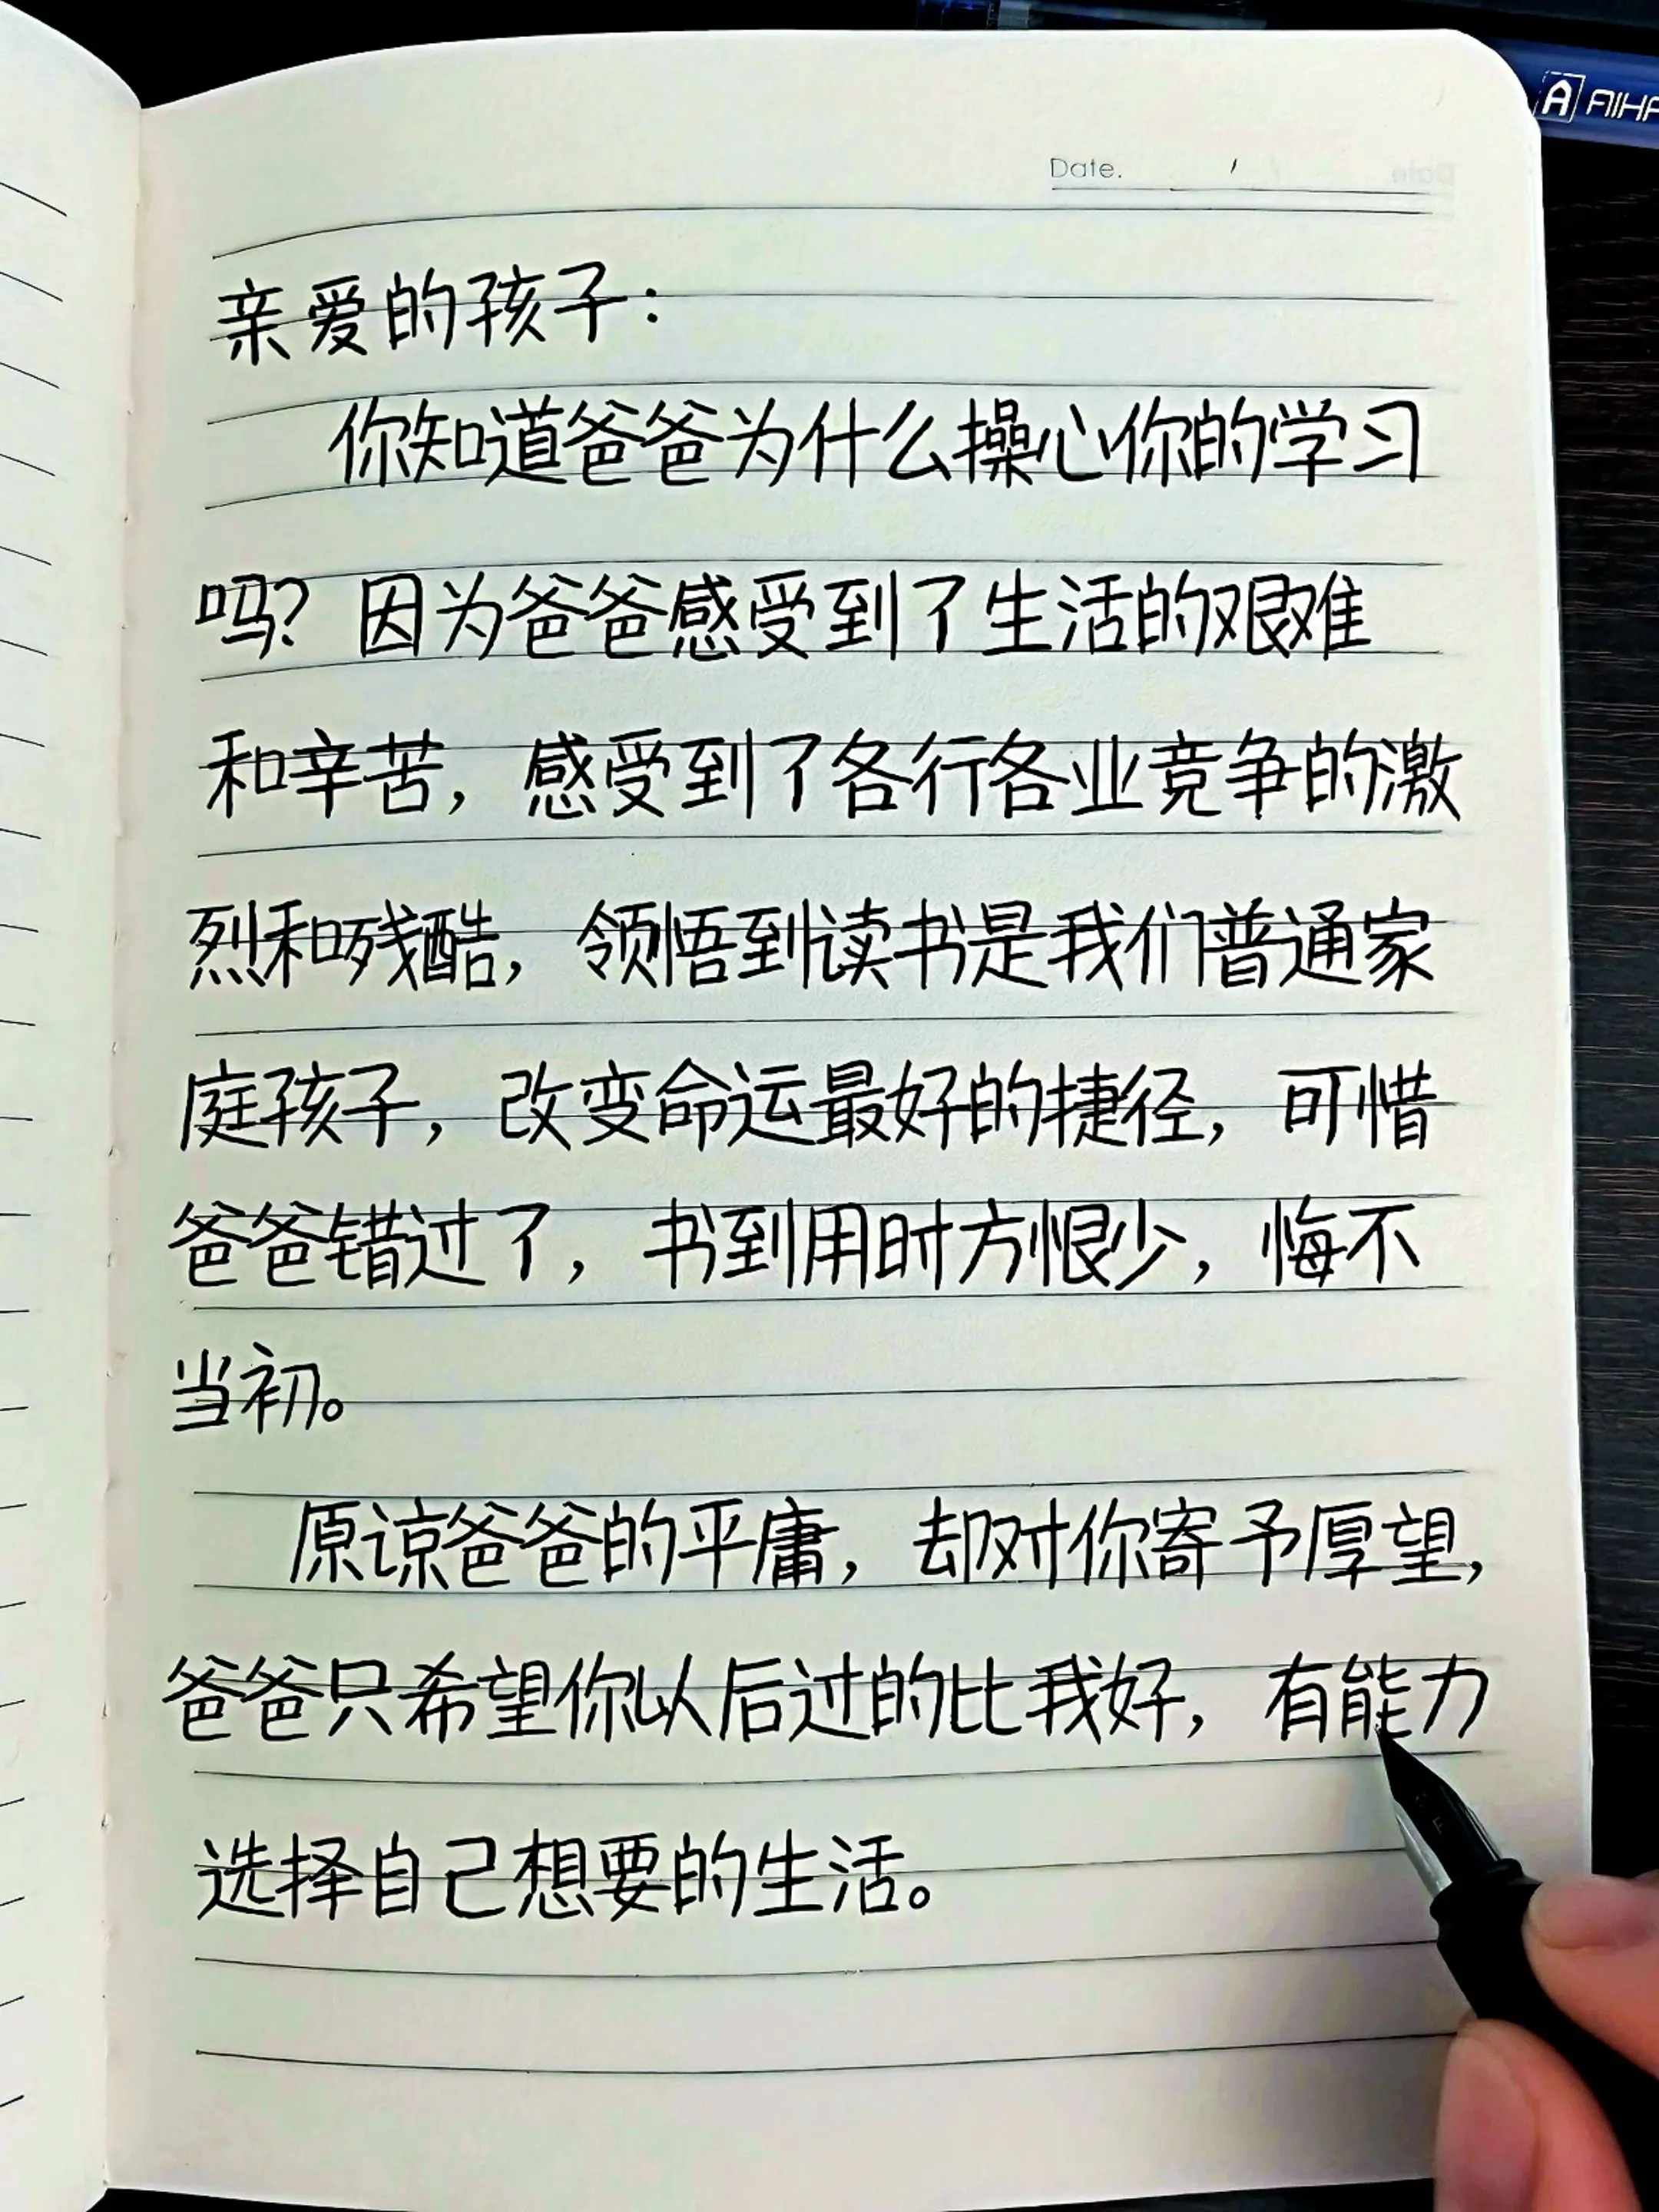 AIHA
Date.
亲爱的孩子：
你知道爸爸为什么操心你的学习
吗？因为爸爸感受到了生活的艰难
和辛苦，感受到了各行各业竞争的激
烈和残酷，领悟到读书是我们普通家
庭孩子，改变命运最好的捷径，可惜
爸爸错过了，书到用时方恨少，悔不
当初。
原谅爸爸的平庸，却对你寄予厚望，
爸爸只希望你以后过的比我好，有能力
选择自己想要的生活。